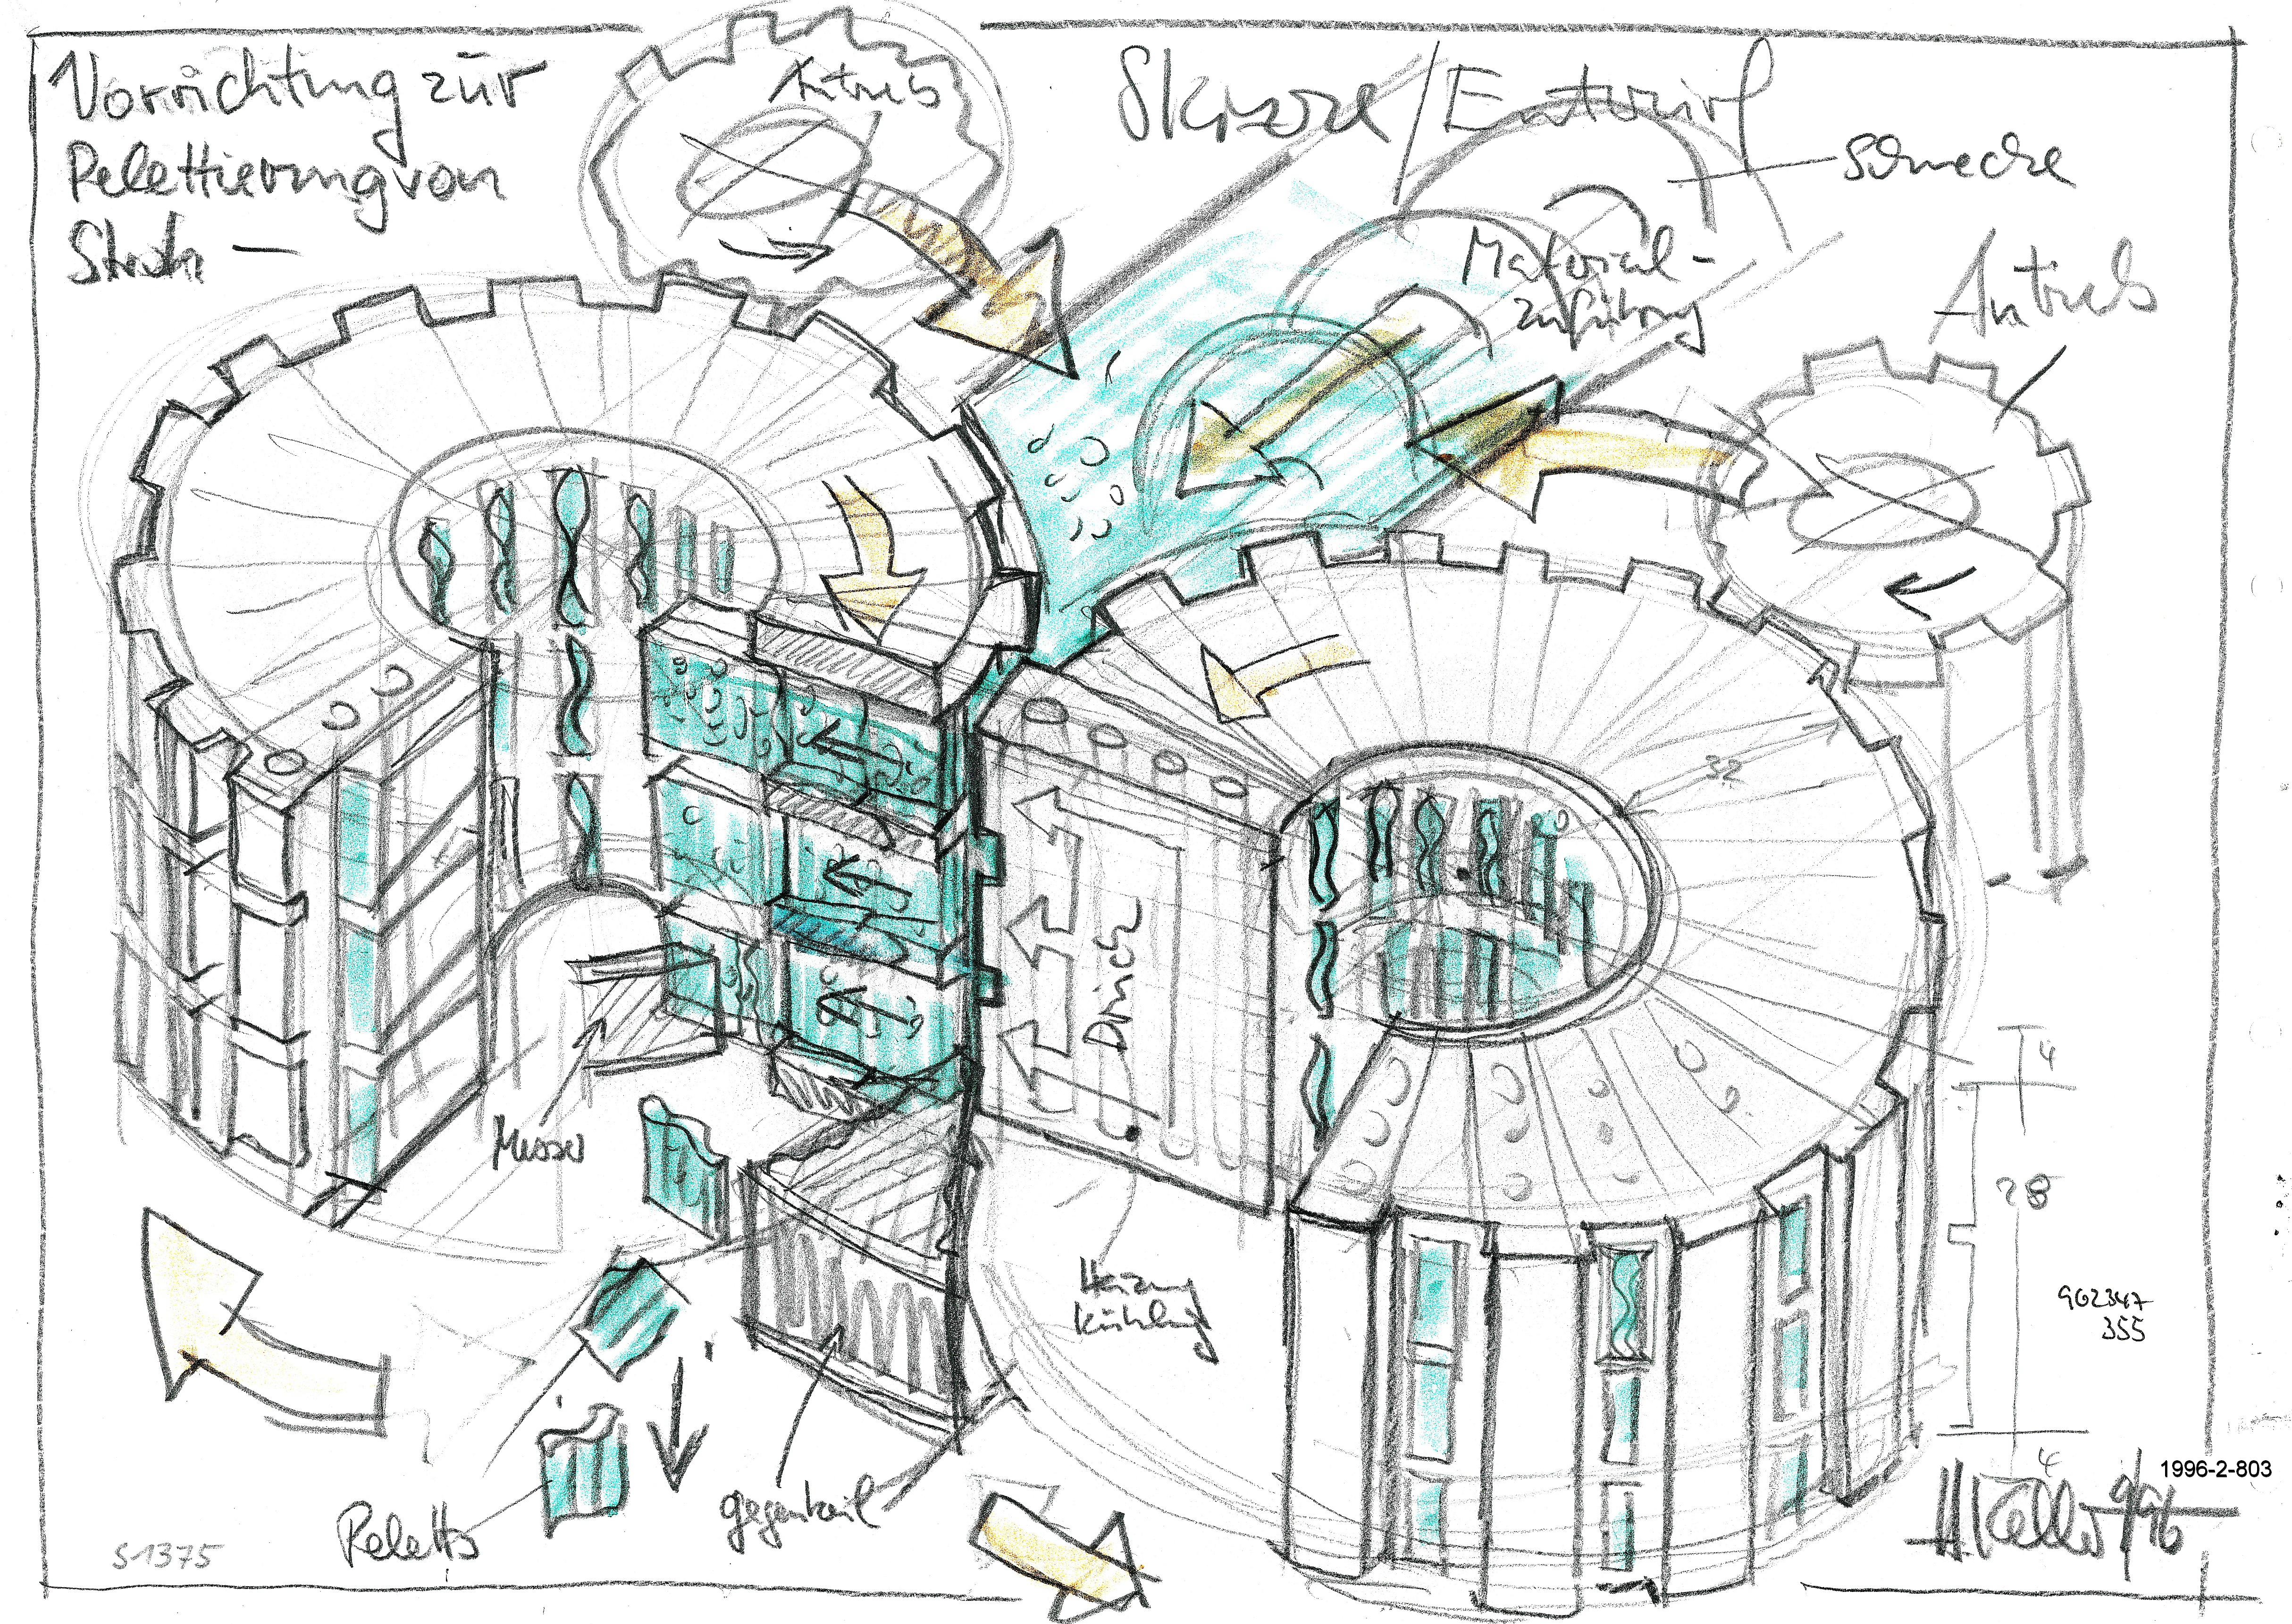 Vorrichtung zur
Pelettierung von
Stroh –
Antrieb
Skizze/Entwurf
Schnecke
Material-
zuführung
Antrieb
32
Druck
Messer
4
28
Heizung
Kühlung
902347
355
4
Peletts
gegenkeil
S1375
H. Keller 9/96
1996-2-803